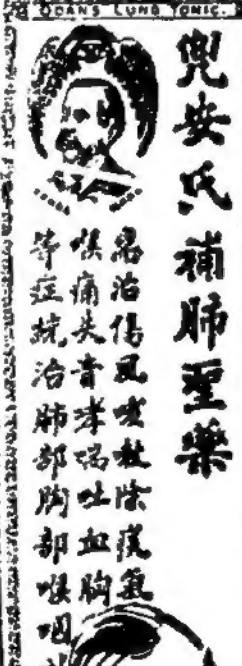 DOANS LUNG TONIC.
兜安氏補肺聖藥
治傷風咳嗽除痰氣
喉痛失音哮喘吐血胸
等症統治肺部胸部喉咽